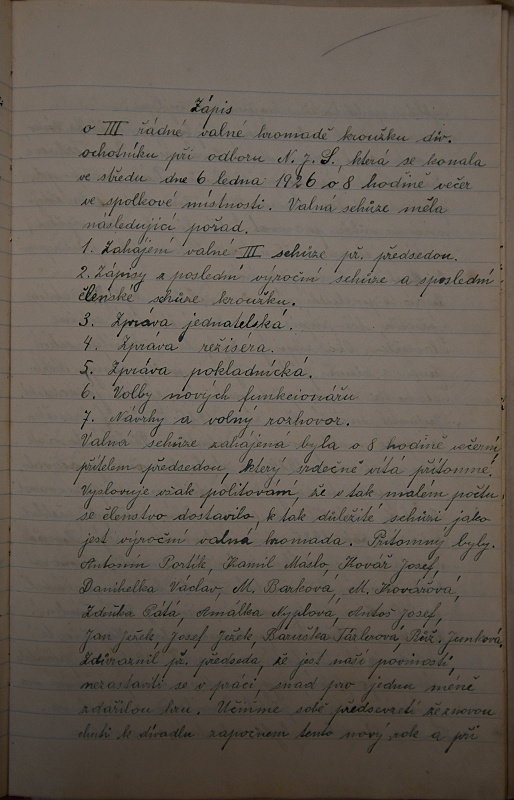 Zápis
o III řádné valné hromadě kroužku div.
ochotníku při odboru N. J. S., která se konala
ve středu dne 6 ledna 1926 o 8 hodině večer
ve spolkové místnosti. Valná schůze měla
následující pořad.
1. Zahájení valné III schůze př. předsedou.
2. Zápisy z poslední výroční schůze a sposlední
členské schůze kroužku.
3. Zpráva jednatelská.
4. Zpráva režiséra.
5. Zpráva pokladnická.
6. Volby nových funkcionářu
7. Návrhy a volný rozhovor.
Valná schůze zahájená byla o 8 hodině večerní
přítelem předsedou, který srdečně vítá přítomné.
Vyslovuje však politování, že v tak malém počtu
se členstvo dostavilo, k tak důležité schůzi jako
jest výroční valná hromada. Přítomny byly.
Antonín Portík, Kamil Máslo, Kovář Josef,
Danihelka Václav, M. Barková, M. Kovářová,
Zdeňka Pátá, Amálka Nyplová, Antoš Josef,
Jan Ježek, Josef Ježek, Baruška Tázlerová, Růž. Jemková.
Zdůraznil př. předseda, že jest naší povinností,
nezastaviti se v práci, snad pro jednu méně
zdařilou hru. Učiníme sobě předsevzetí že znovou
chuti k divadlu započnem tento nový rok a při